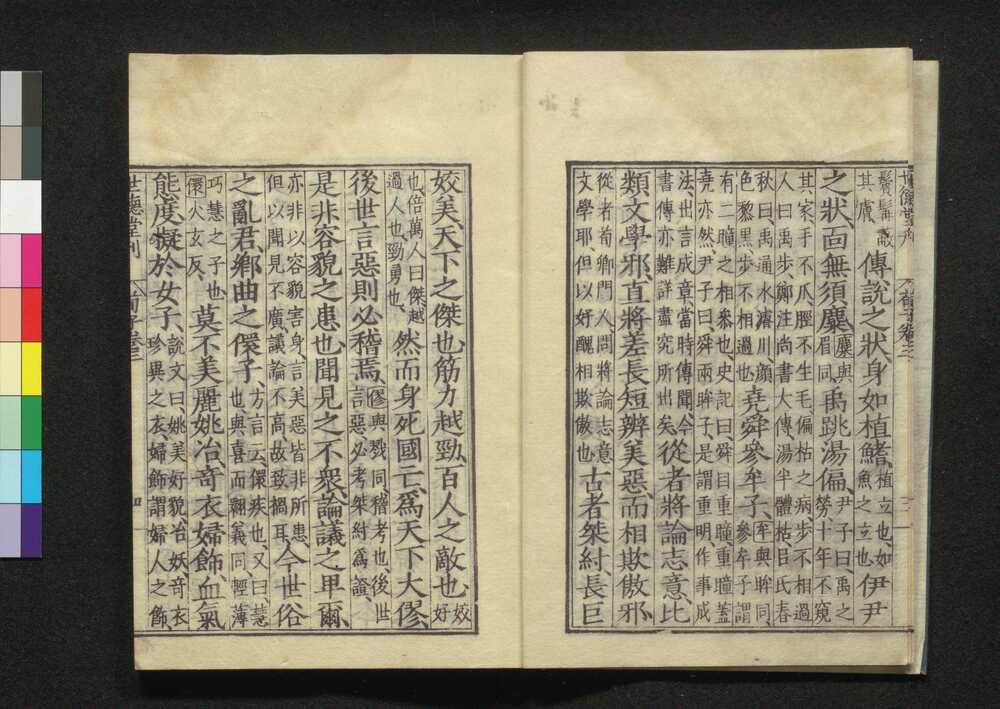 鬢鬋蔽
其膚
傅說之狀身如植鰭
植立也如
魚之立也
伊尹
之狀面無須麋
麋與
眉同
禹跳湯偏
尹子曰禹之
勞十年不窺
其家手不爪脛不生毛偏枯之病步不相過
人曰禹步鄭注尚書大傳湯半體枯呂氏春
秋曰禹通水濬川顏
色黎黒步不相過也
堯舜參牟子
牟與眸同
參牟子謂
有二瞳之相參也史記曰舜目重瞳重瞳蓋
堯亦然尹子曰舜兩眸子是謂重明作事成
法出言成章當時傳聞今
書傳亦難詳盡究所出矣
從者將論志意比
類文學邪直將差長短辨美惡而相欺傲邪
從者荀卿門人問將論志意
文學耶但以好醜相欺傲也
古者桀紂長巨
姣美天下之傑也筋力越勁百人之敵也
姣
好
也倍萬人曰傑越
過人也勁勇也
然而身死國亡爲天下大僇
後世言惡則必稽焉
僇與戮同稽考也後世
言惡必考桀紂爲證
是非容貌之患也聞見之不衆論議之卑爾
亦非以容貌害身言美惡皆非所患
但以聞見不廣議論不高故致禍耳
今世俗
之亂君鄉曲之儇子
方言云儇疾也又曰慧
也與喜而翾義同輕薄
巧慧之子也
儇火玄反
莫不美麗姚冶奇衣婦飾血氣
態度擬於女子
說文曰姚美好貌冶妖奇衣
珍異之衣婦飾謂婦人之飾
世德堂刊